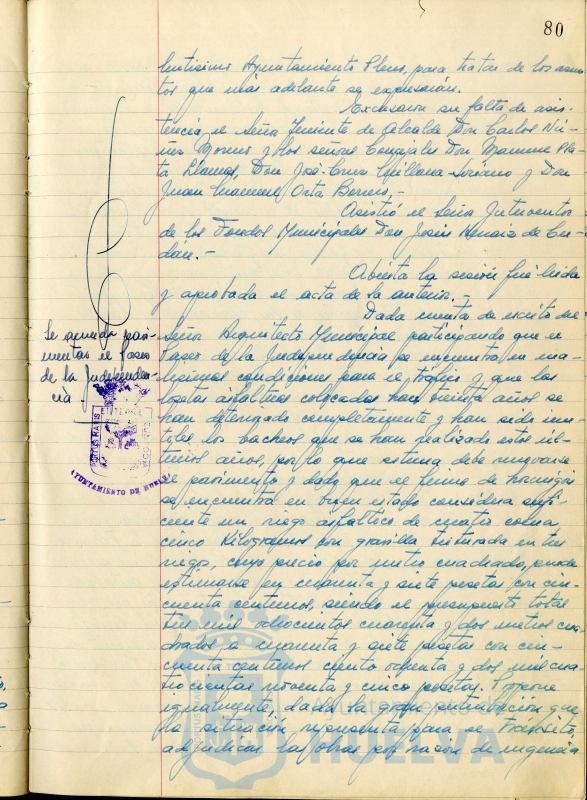 80
lentísimo Ayuntamiento Pleno, para tratar de los asun-
tos que más adelante se expresarán.
Excusaron su falta de asis-
tencia, el Señor Teniente de Alcalde Don Carlos
y los señores Concejales Don Manuel
Don José Orellana Soriano y Don
Juan Manuel Orta Borrero.-
Asistió el Señor Interventor
de los Fondos Municipales Don Jesús de
.-
Abierta la sesión fué leida
y aprobada el acta de la anterior.-
Dada cuenta de escrito del
Se acuerda pavi-
mentar el Paseo
de la Independen-
cia.-
Señor Arquitecto Municipal participando que el
Paseo de la Independencia se encuentra en ma-
condiciones para el tráfico y que las
losetas asfálticas colocadas hace treinta años se
han deteriorado completamente y han sido inú-
tiles, los bacheos que se han realizado estos úl-
timos años, por lo que estima debe renovarse
el pavimento y dado que el firme de hormigón
se encuentra en buen estado considera sufi-
ciente un riego asfáltico de cuatro coma
cinco kilogramos con gravilla triturada en tres
riegos, cuyo precio por metro cuadrado, puede
estimarse en cuarenta y siete pesetas con cin-
cuenta centimos, siendo el presupuesto total
tres mil ochocientos cuarenta y dos metros cua-
drados a cuarenta y siete pesetas con cin-
cuenta centimos ciento ochenta y dos mil cua-
trocientas noventa y cinco pesetas. Propone
igualmente, dada la gran perturbación que
la situación representa para el tránsito,
adjudicar las obras por razón de urgencia
PORTUS MARIS ET TERRAE CUSTODIA
AYUNTAMIENTO DE HUELVA
Ayuntamiento de
HUELVA